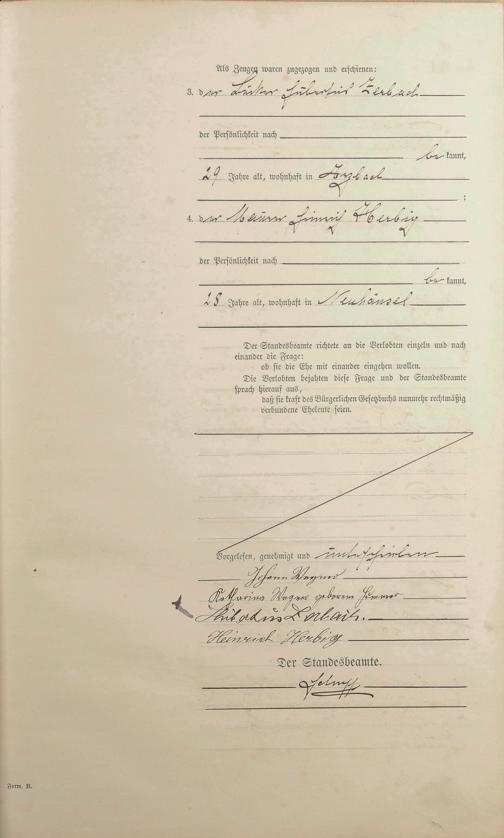 Als Zeugen waren zugezogen und erschienen:
3. der Bäcker Hubertus Zerbach
der Persönlichkeit nach
be kannt,
29 Jahre alt, wohnhaft in
;
4. der Maurer Heinrich Herbig
der Persönlichkeit nach
be kannt,
28 Jahre alt, wohnhaft in Neuhäusel
Der Standesbeamte richtete an die Verlobten einzeln und nach
einander die Frage:
ob sie die Ehe mit einander eingehen wollen.
Die Verlobten bejahten diese Frage und der Standesbeamte
sprach hierauf aus,
daß sie kraft des Bürgerlichen Gesetzbuchs nunmehr rechtmäßig
verbundene Eheleute seien.
Vorgelesen, genehmigt und unterschrieben
Johann Wagner
Katharina Wagner geborene
Hubertus Zerbach.
Heinrich Herbig
Der Standesbeamte.
Form. B.